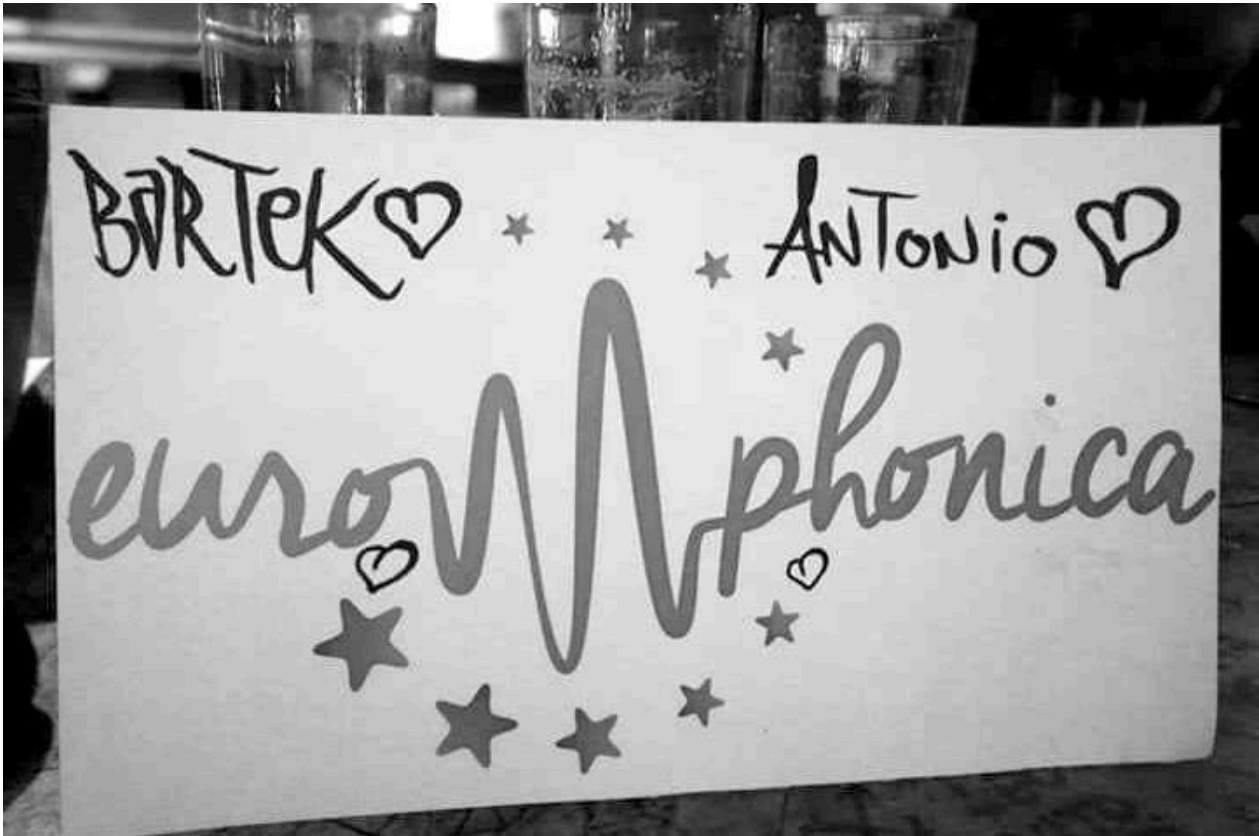 BARTEK ANTONIO
europhonica